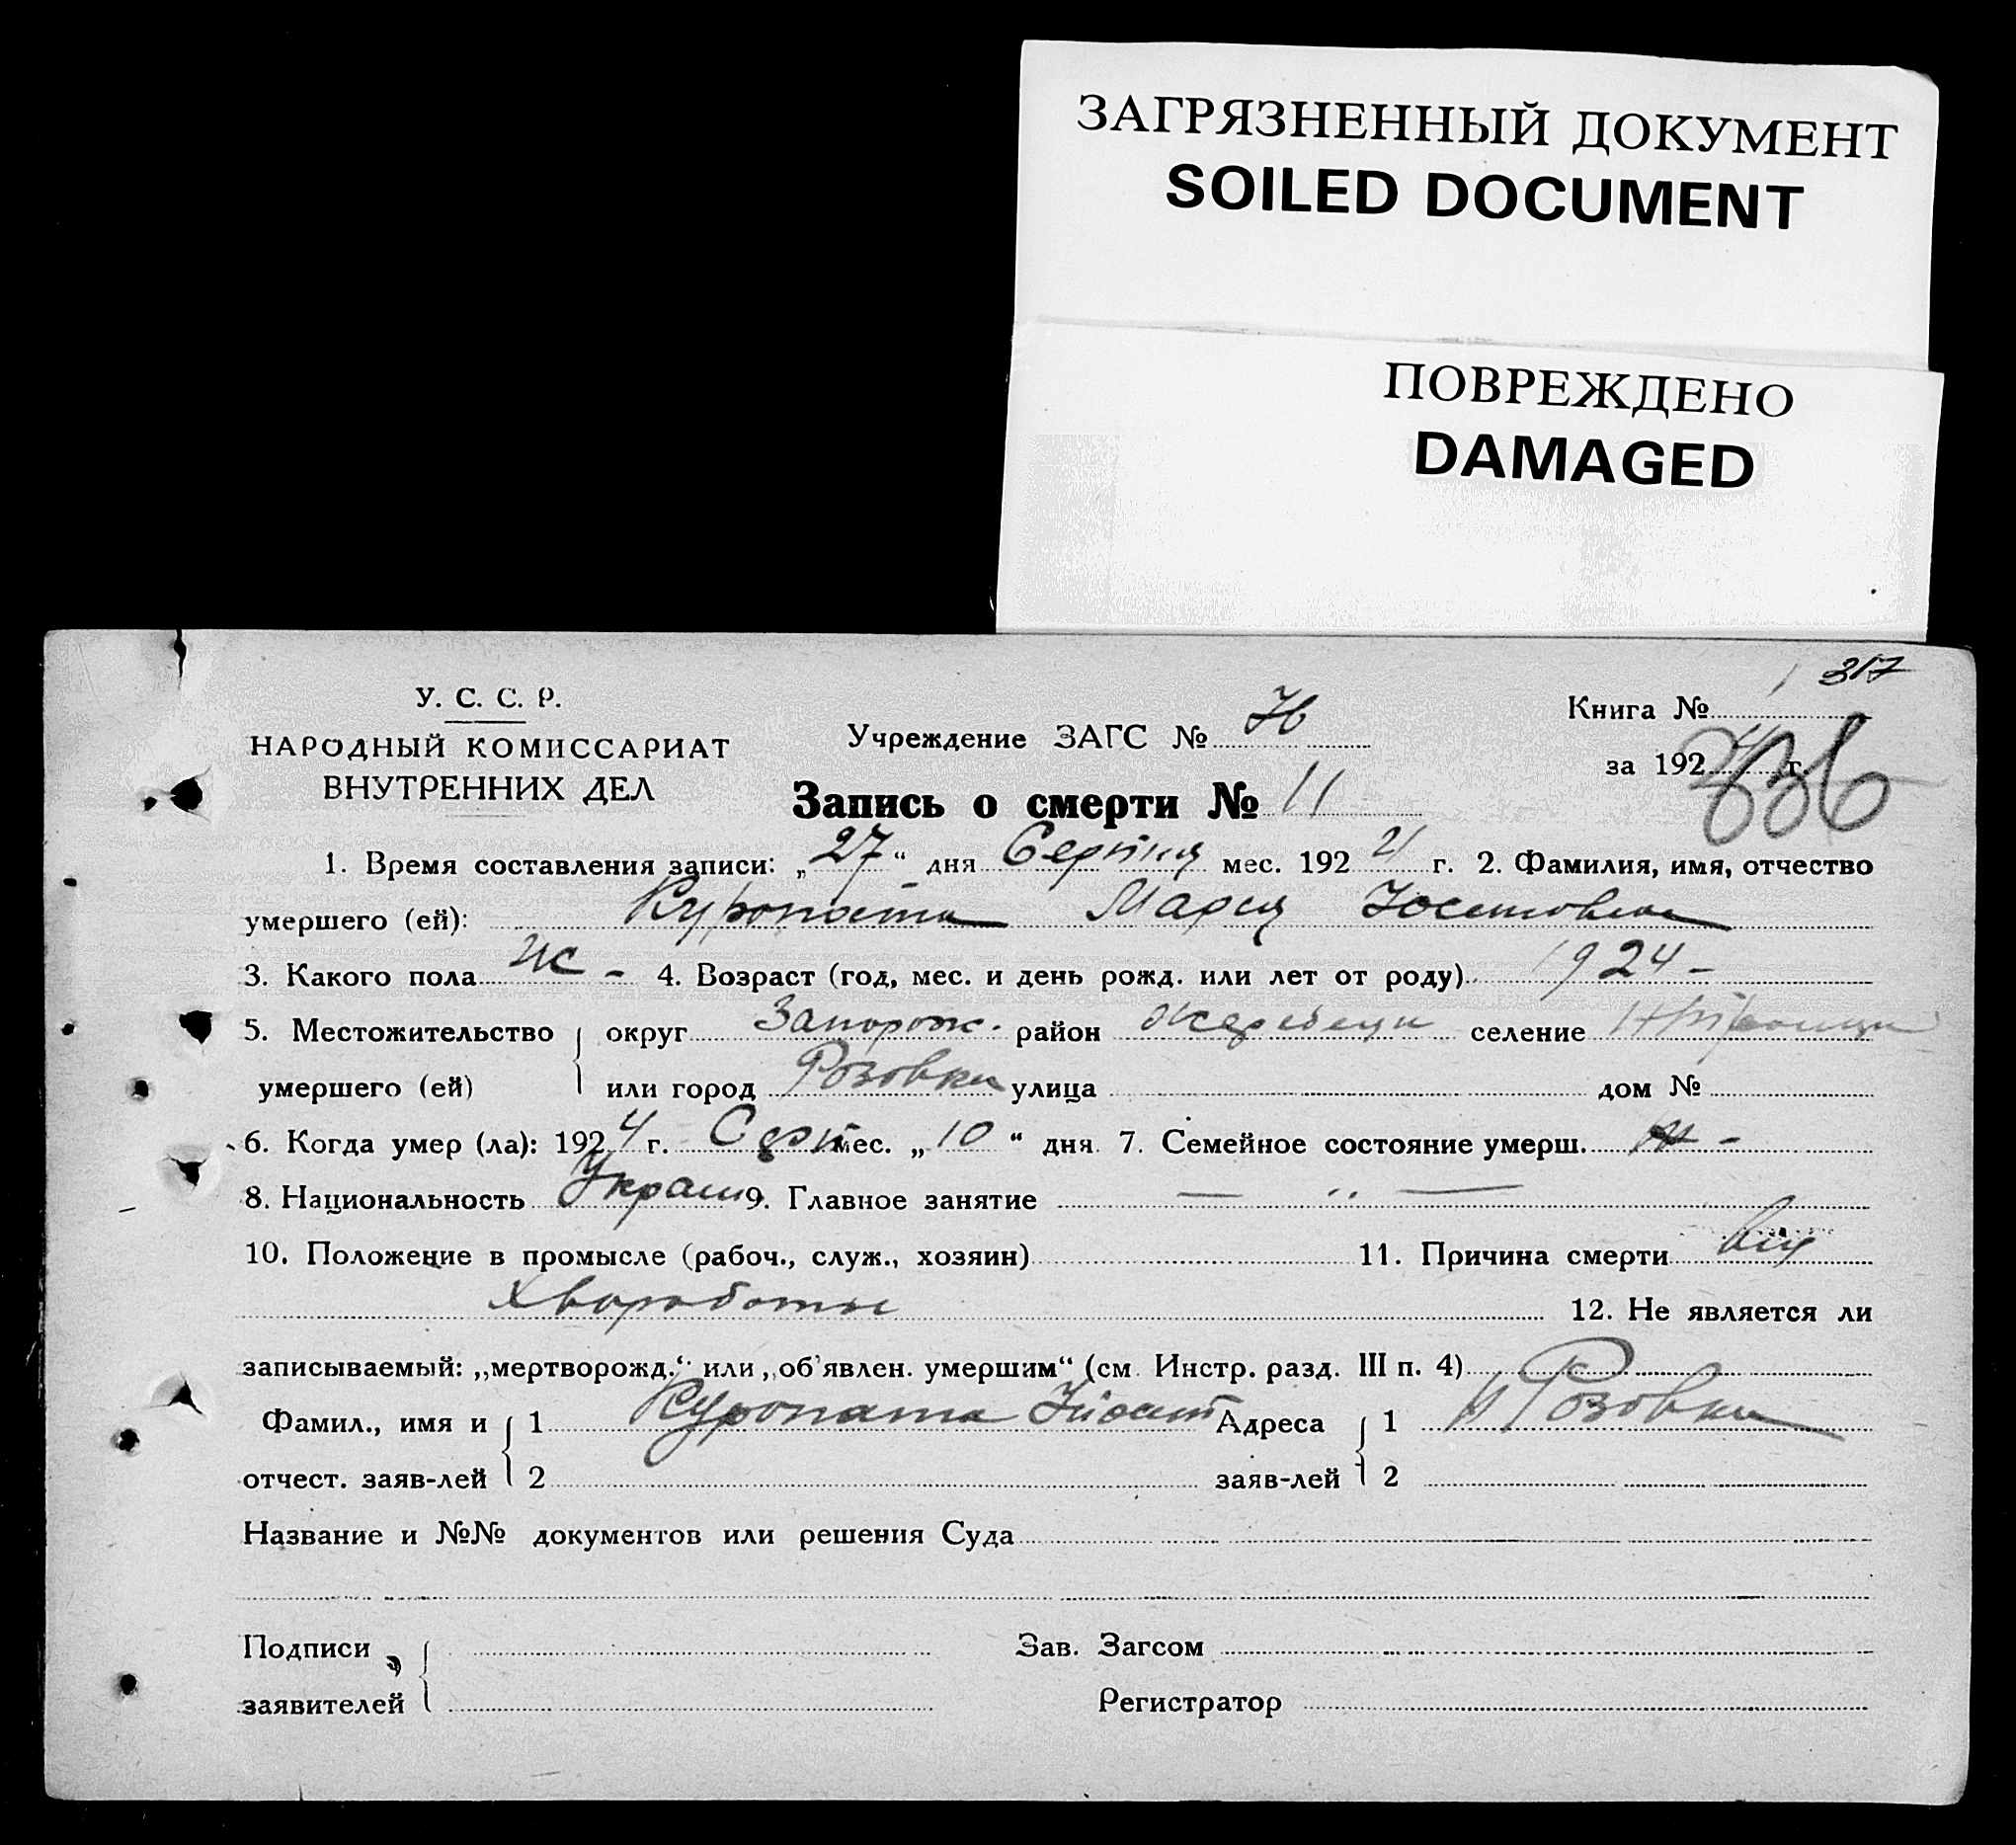 ЗАГРЯЗНЕННЫЙ ДОКУМЕНТ
SOILED DOCUMENT
ПОВРЕЖДЕНО
DAMAGED
317
У. С. С. Р.
НАРОДНЫЙ КОМИССАРИАТ
ВНУТРЕННИХ ДЕЛ
Учреждение ЗАГС №
Книга № 1
за 192 г.
Запись о смерти № 11
1. Время составления записи: „27“ дня Серпня мес. 1924 г. 2. Фамилия, имя, отчество
умершего (ей): Куропата Мария
3. Какого пола ж - 4. Возраст (год, мес. и день рожд. или лет от роду) 1924 -
5. Местожительство округ Запорож. район Жеребецк селение
умершего (ей) или город Розовка улица дом №
6. Когда умер (ла): 1924 г. Серп мес. „10“ дня 7. Семейное состояние умерш.
8. Национальность Украин 9. Главное занятие — " —
10. Положение в промысле (рабоч., служ., хозяин) 11. Причина смерти від
хвороботы 12. Не является ли
записываемый: „мертворожд.“ или „об'явлен. умершим“ (см. Инстр. разд. III п. 4)
Фамил., имя и 1 Куропата Адреса 1 Розовка
отчест. заяв-лей 2 заяв-лей 2
Название и №№ документов или решения Суда
Подписи Зав. Загсом
заявителей Регистратор